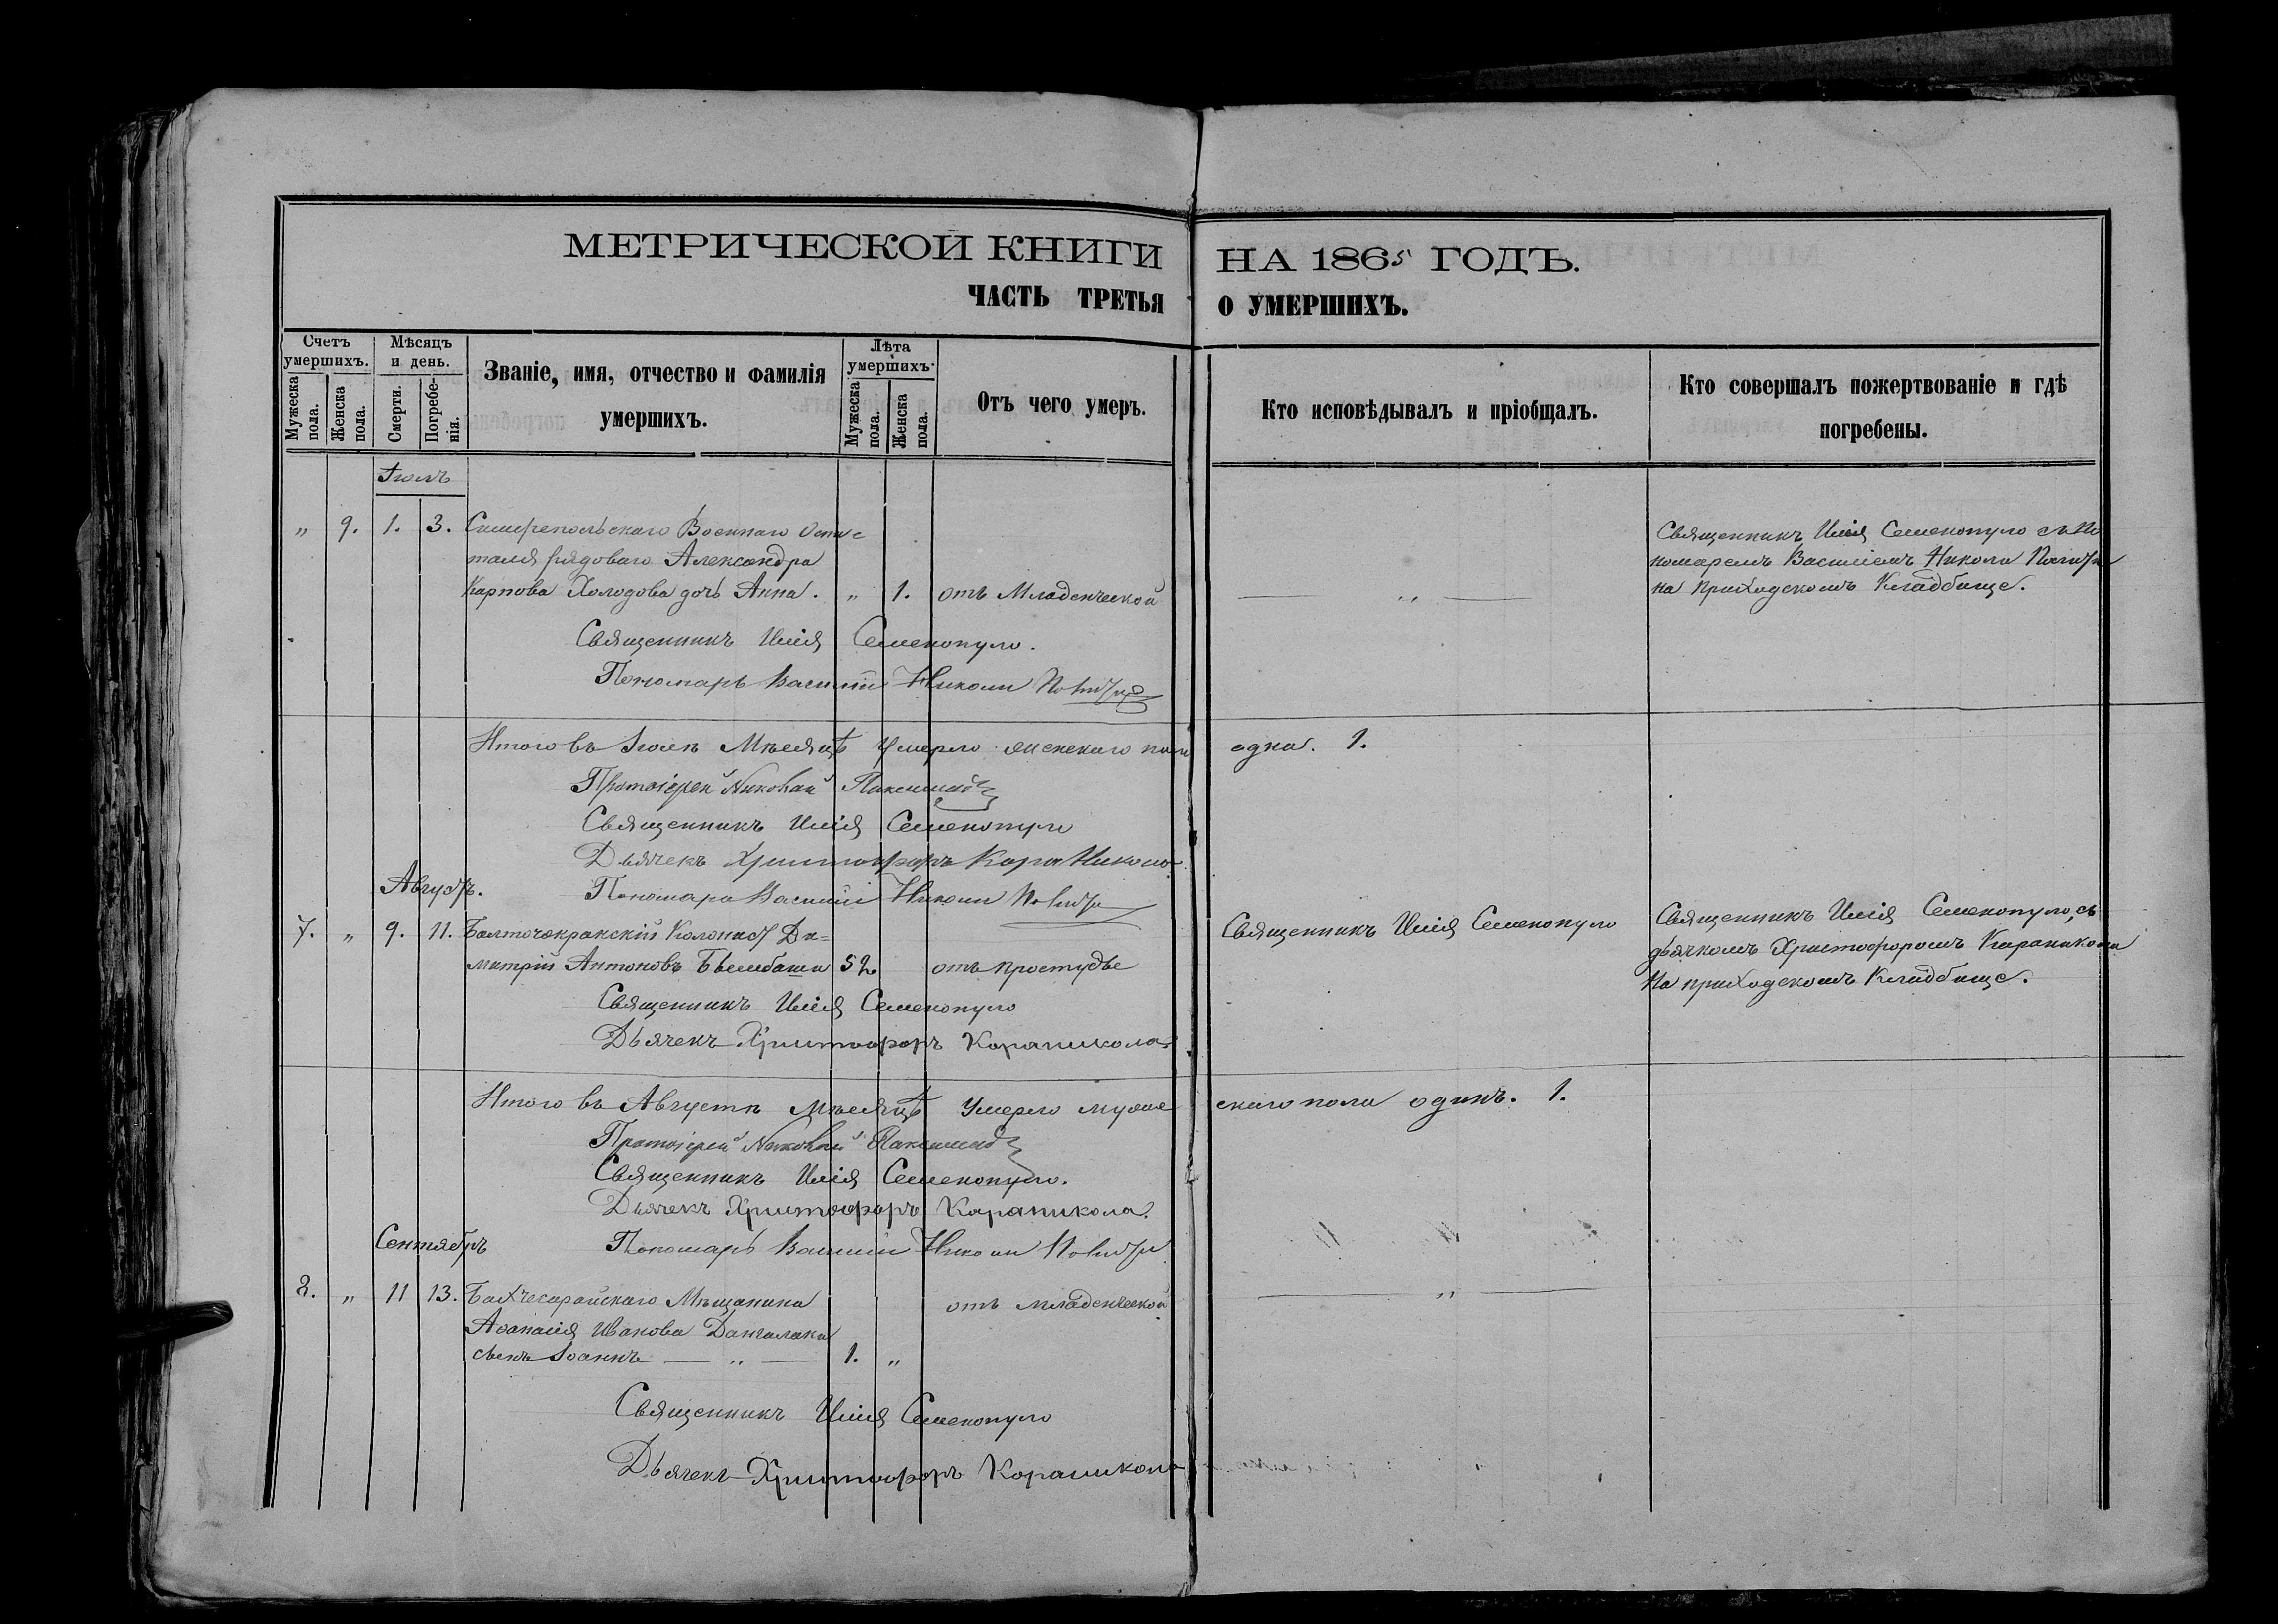 МЕТРИЧЕСКОЙ КНИГИ НА 1865 ГОДЪ.
ЧАСТЬ ТРЕТЬЯ О УМЕРШИХЪ.
Счетъ умершихъ.
Мужеска пола.
Женска пола.
Мѣсяцъ и день.
Смерти.
Погребенія.
Званіе, имя, отчество и фамилія
умершихъ.
Лѣта умершихъ.
Мужеска пола.
Женска пола.
Отъ чего умеръ.
Кто исповѣдывалъ и пріобщалъ.
Кто совершалъ пожертвованіе и гдѣ
погребены.
Іюль
„ 9. 1. 3. Симферопольскаго Военнаго
рядоваго Александра
Карпова Холодова дочь Анна. „ 1. отъ Младенческой
„
Священникъ Илія Семенопуло съ По
номаремъ Василіемъ Николи
на приходскомъ Кладбище.
Священникъ Илія Семенопуло.
Пономарь Василій Николи
Итого въ Іюлѣ Мѣсяцѣ Умерло женскаго пола одна. 1.
Протоіерей Николай
Священникъ Илія Семенопуло
Дьячекъ Христофоръ Кара Никола
Августъ.
Пономарь Василій Николи
7. „ 9. 11. Колонистъ Ди=
митрій Антоновъ 52 отъ простудье
Священникъ Илія Семенопуло
Священникъ Илія Семенопуло, съ
дьячкомъ Христофоромъ Караникола
на приходскомъ Кладбище.
Священникъ Илія Семенопуло
Дьячекъ Христофоръ Караникола
Итого въ Августѣ Мѣсяцѣ Умерло муже скаго пола одинъ. 1.
Протоіерей Николай
Священникъ Илія Семенопуло.
Дьячекъ Христофоръ Караникола.
Сентябрь
Пономарь Василій Николи
8. „ 11 13. Бахчесарайскаго Мѣщанина отъ младенческой
„
Аѳанасія Иванова
сынъ Іоаннъ — „ — 1. „
Священникъ Илія Семенопуло
Дьячекъ Христофоръ Караникола